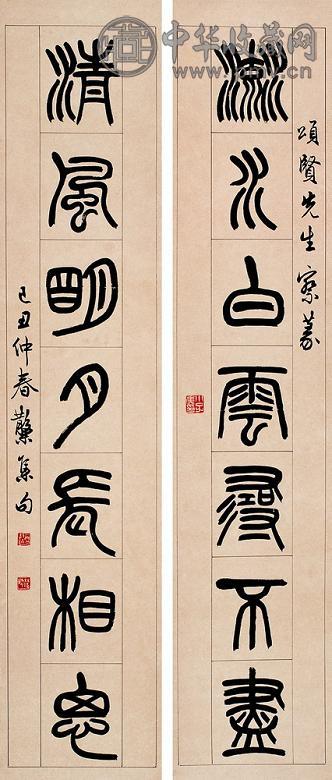 中华收藏网
頌賢先生察篆
流水白雲尋不盡
清風明月長相思
己丑仲春集句